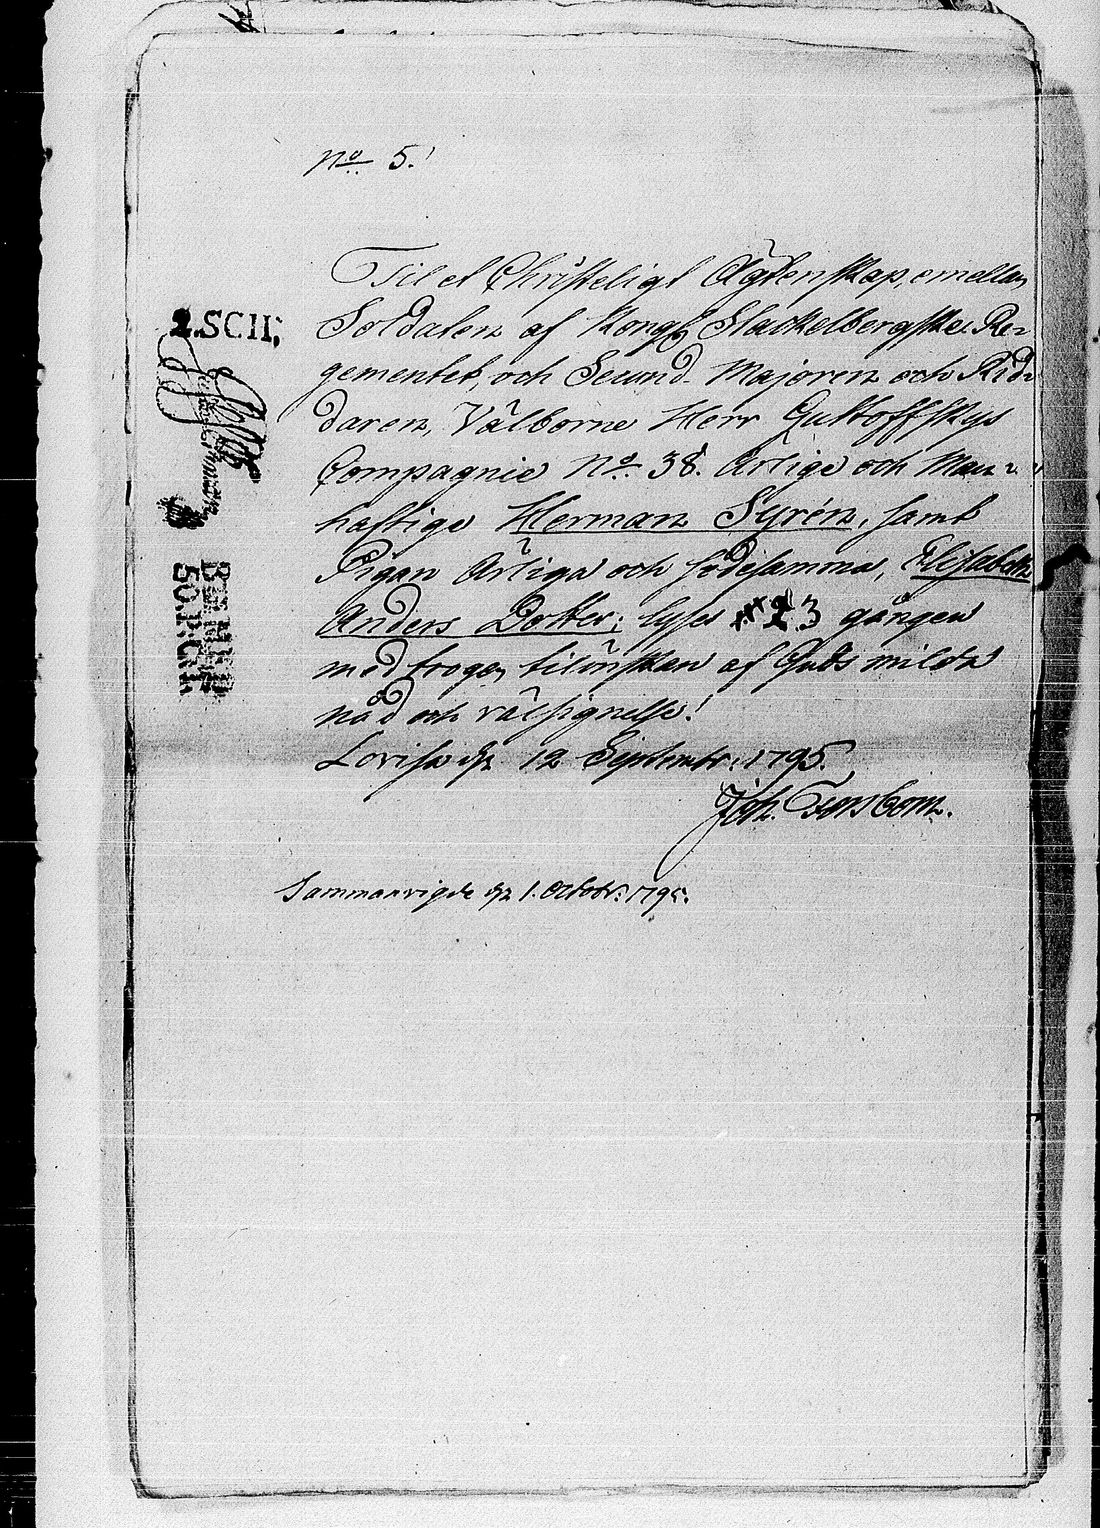 No 5.
Til et Christeligt Ägtenskap, emellan
Soldaten af Kongl. Stackelbergske Re-
gementet, och Secund. Majoren och Rid-
daren, Välborne Herr Guttoffskys
Compagnie No. 38. Ärlige och Man-
haftige Herman Syrén, samt
Pigan Ärliga och södesamma, Elisabeth
Anders Dotter; lyses 2 3 gången
med trogen tilönskan af Guds milda
nåd och välsignelse!
Lovisa den 12 Septembr. 1795.
Joh. Forsbom.
Sammanvigde den 1. Octobr. 1795.
2.SCH;